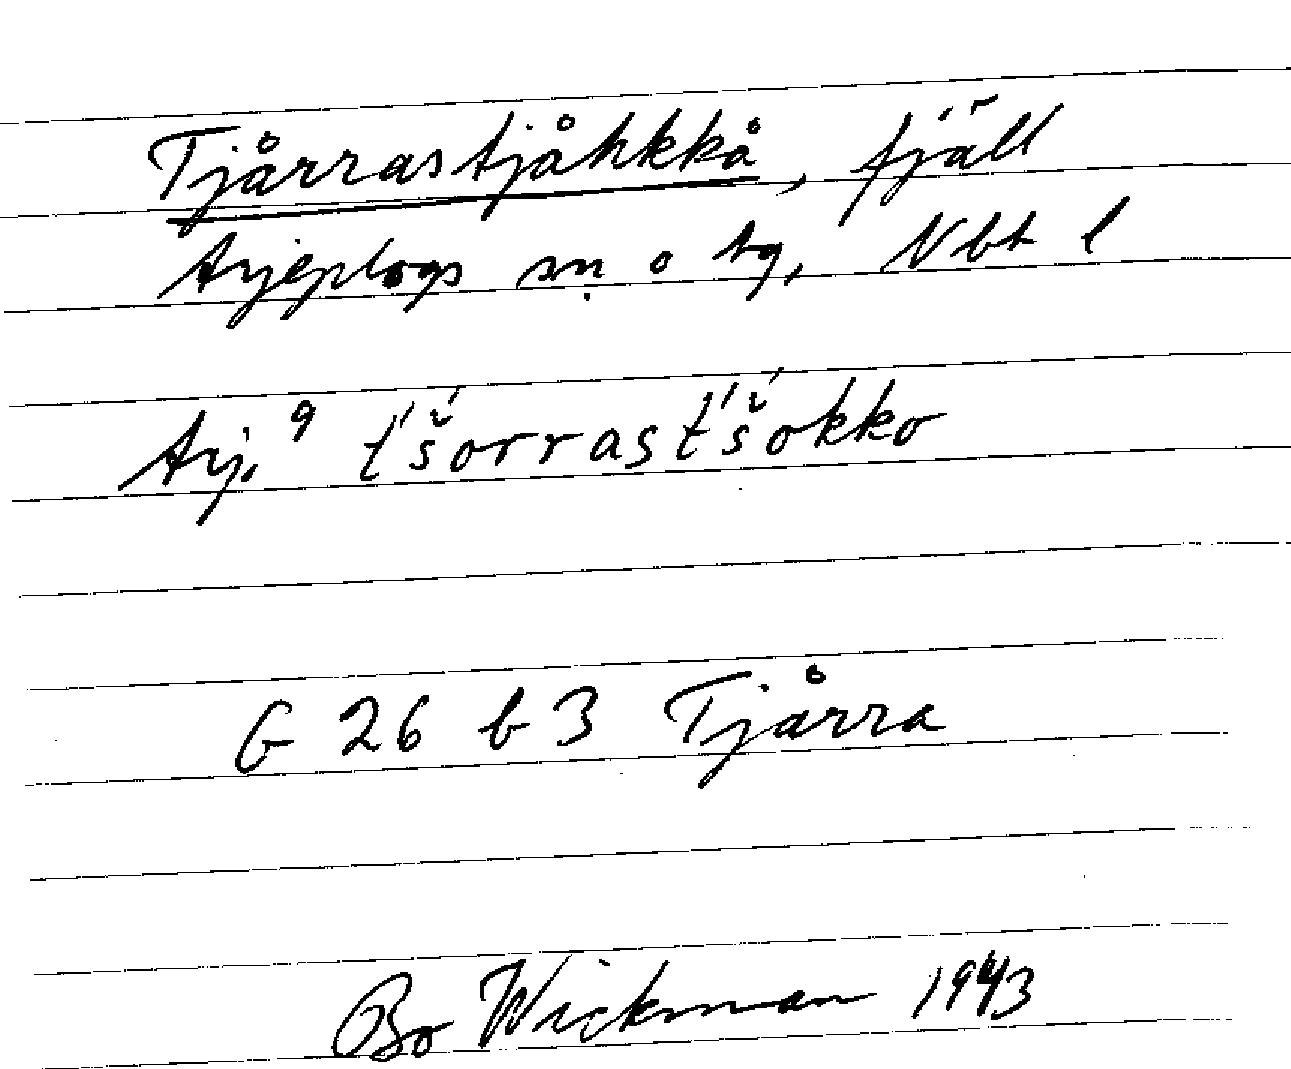 Tjårrastjåhkkå, fjäll
Arjeplogs sn o tg, Nbt l
Arj. 9 t́š́orrast́š́okko
G 26 b 3 Tjårra
Bo Wickman 1943